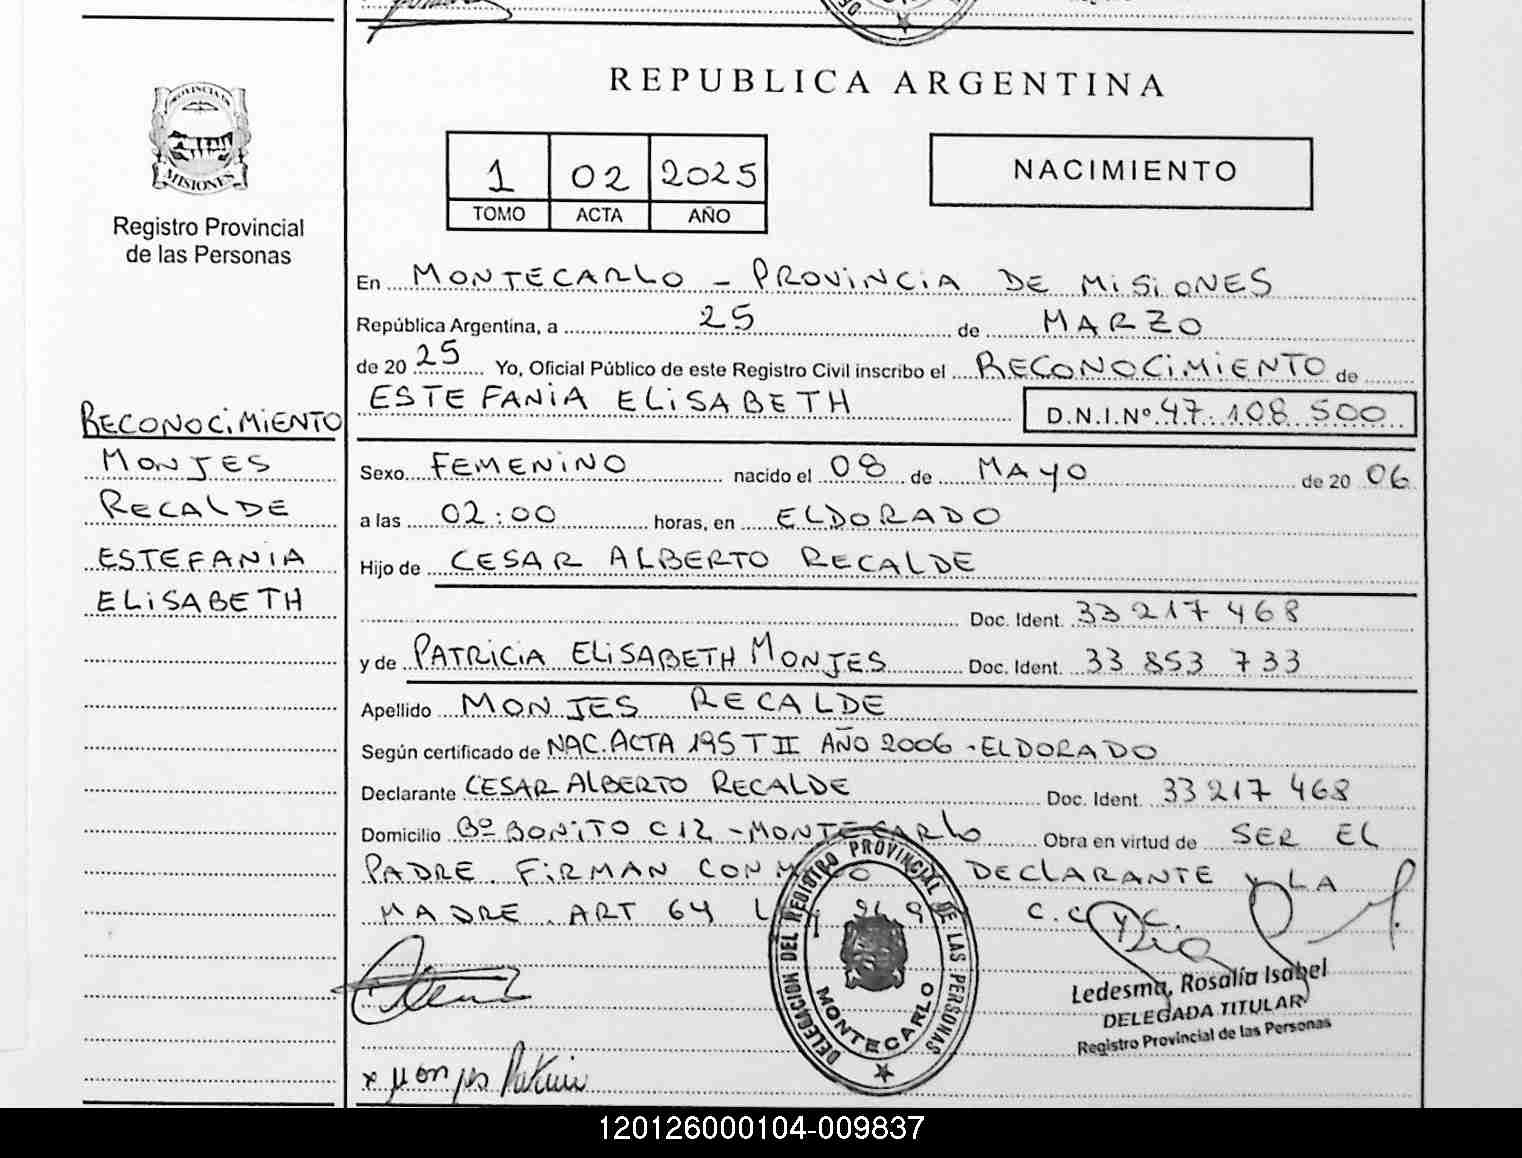 REPUBLICA ARGENTINA
PROVINCIA DE
MISIONES
Registro Provincial
de las Personas
1 02 2025
TOMO ACTA AÑO
NACIMIENTO
En MONTECARLO - PROVINCIA DE MISIONES
República Argentina, a 25 de MARZO
de 20 25 Yo, Oficial Público de este Registro Civil inscribo el RECONOCIMIENTO de
ESTEFANIA ELISABETH D.N.I.Nº 47.108.500
RECONOCIMIENTO
MONJES
RECALDE
ESTEFANIA
ELISABETH
Sexo FEMENINO nacido el 08 de MAYO de 20 06
a las 02:00 horas, en ELDORADO
Hijo de CESAR ALBERTO RECALDE
Doc. Ident. 33 217 468
y de PATRICIA ELISABETH MONJES Doc. Ident. 33 853 733
Apellido MONJES RECALDE
Según certificado de NAC. ACTA 195 T II AÑO 2006 - ELDORADO
Declarante CESAR ALBERTO RECALDE Doc. Ident. 33 217 468
Domicilio Bº BONITO C 12 - MONTECARLO Obra en virtud de SER EL
PADRE. FIRMAN CON DECLARANTE Y LA
MADRE. ART 64 C.C Y C.
DELEGACION DEL REGISTRO PROVINCIAL DE LAS PERSONAS
MONTECARLO
Ledesma, Rosalía Isabel
DELEGADA TITULAR
Registro Provincial de las Personas
x Monjes Patricia
120126000104-009837